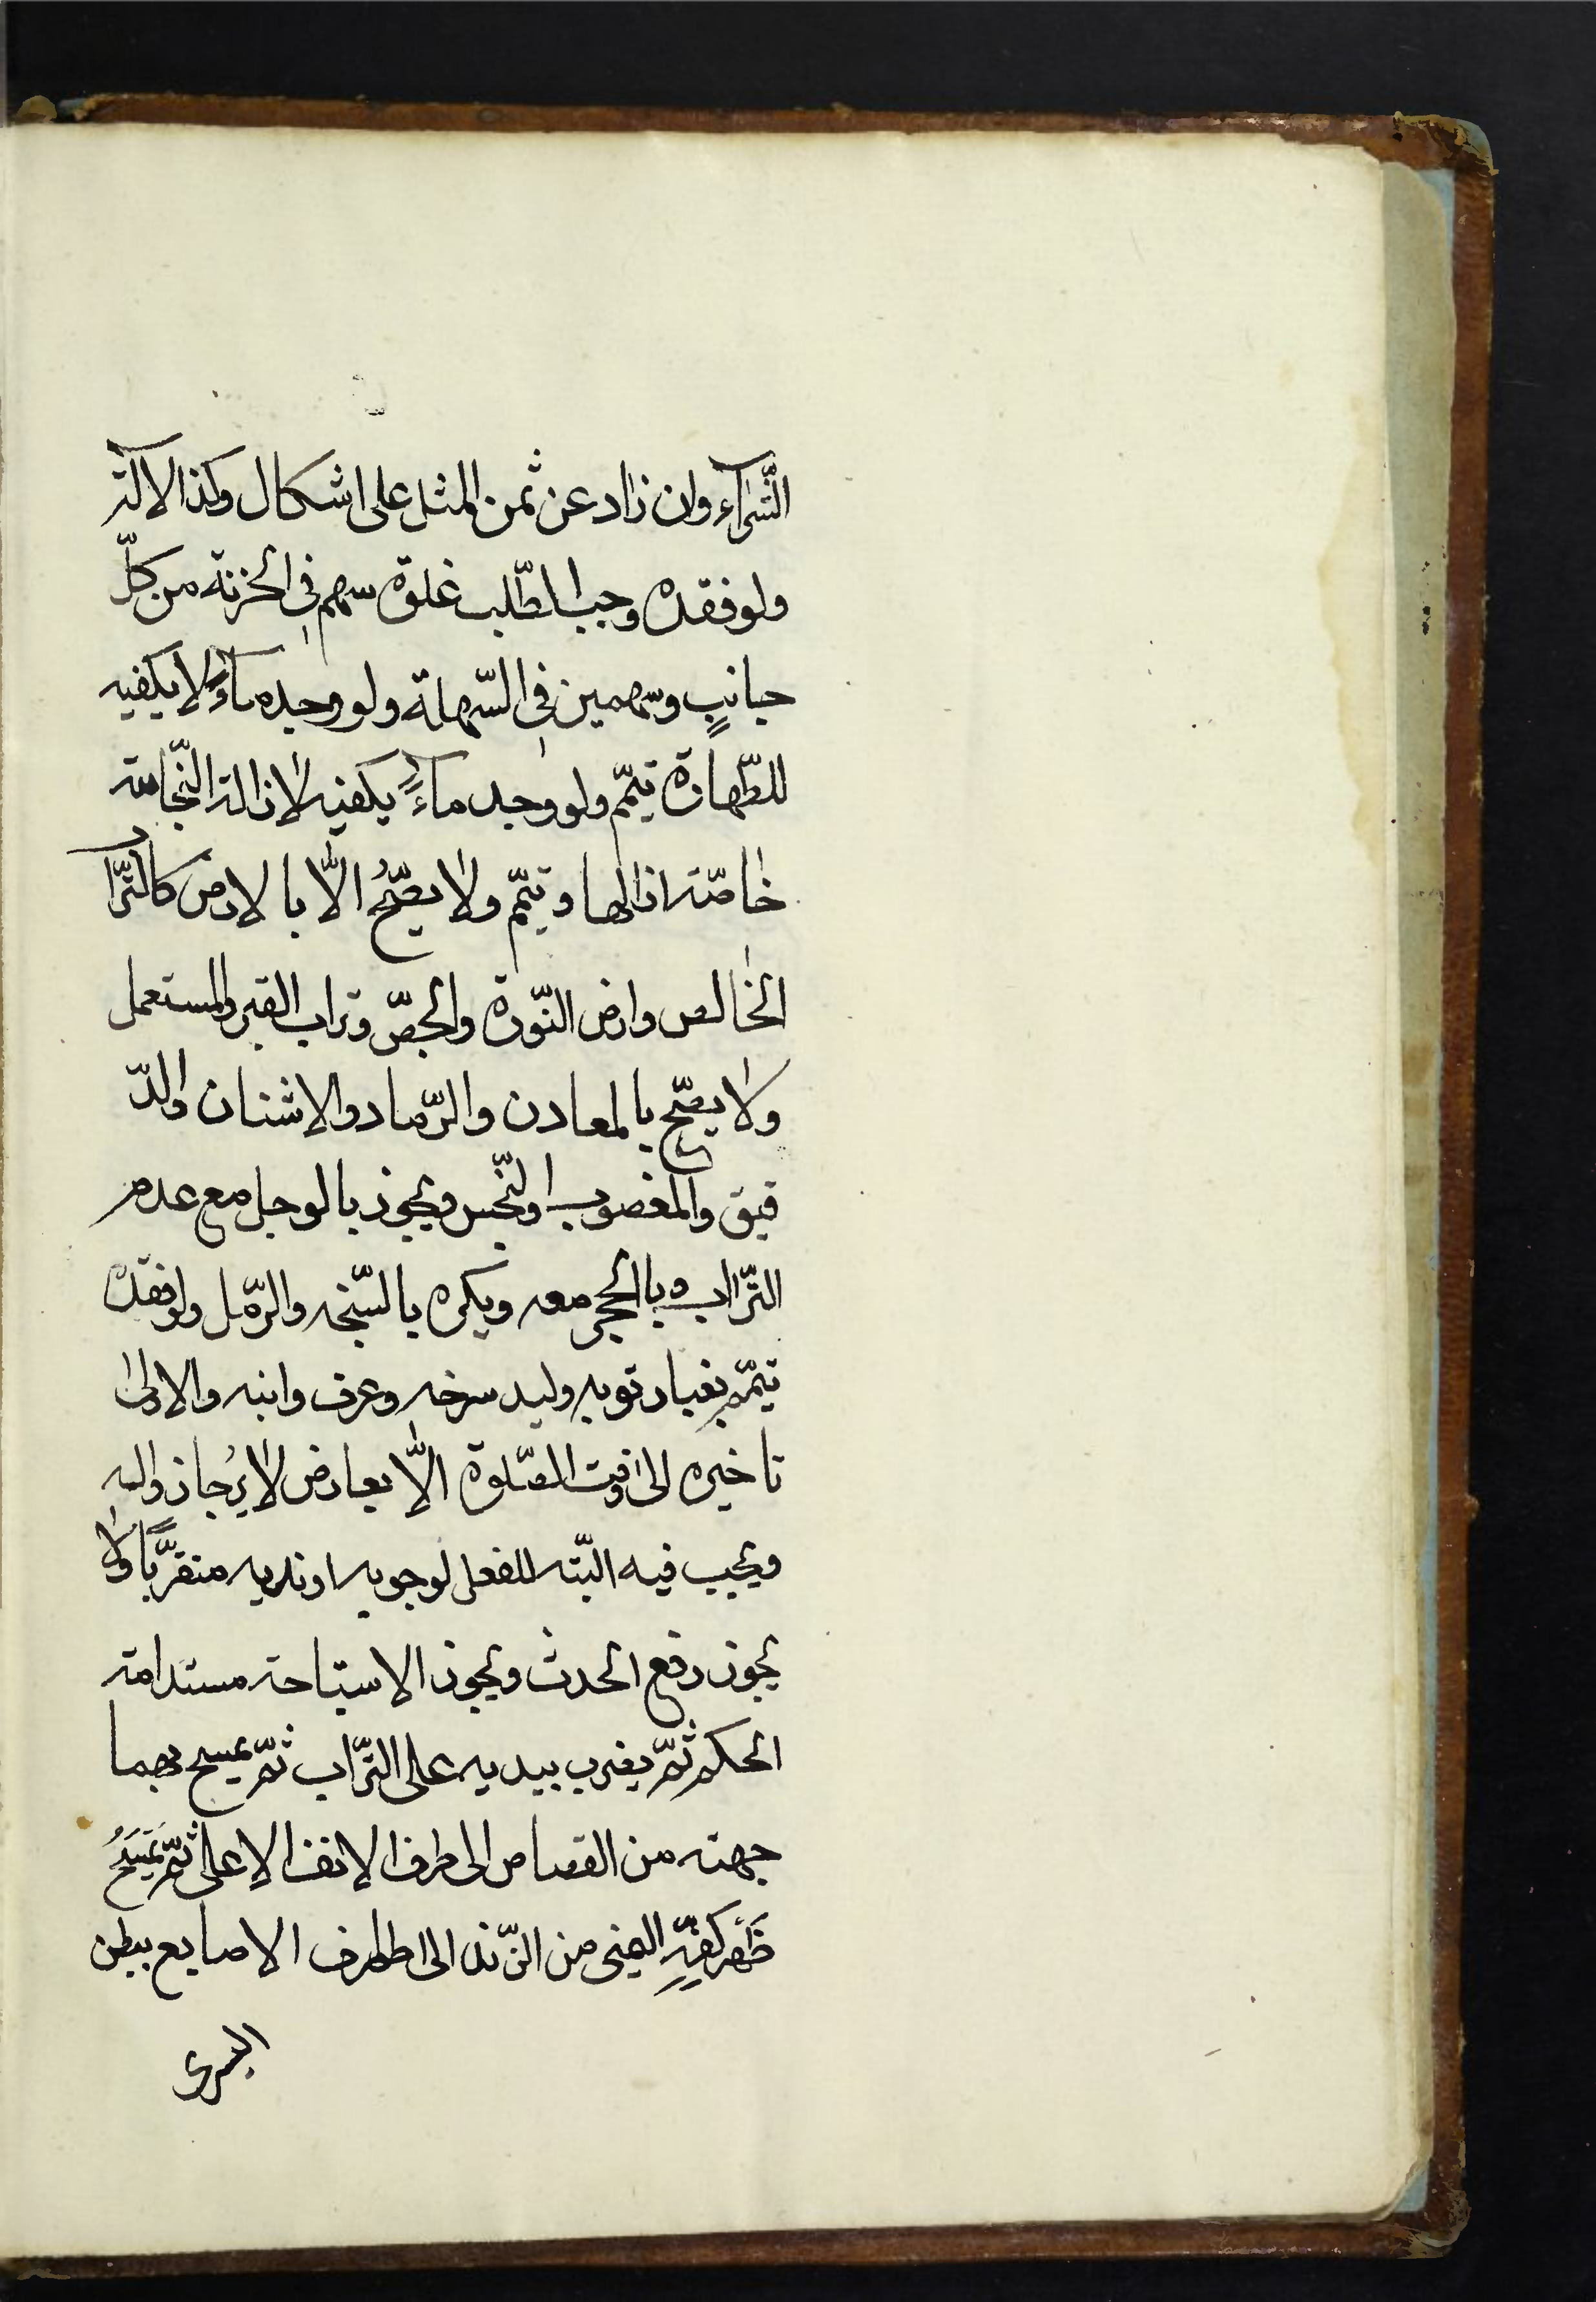 الشّرآء وان زاد عن ثمن المثل على اشكال وكذا الالة
ولو فقده وجب الطّلب غلوة سهم فى الحزنة من كلّ
جانبٍ وسهمين فى السّهلة ولو وجده ماءً لا يكفيه
للطّهارة تيمّم ولو وجد ماءً يكفيه لازالة النّجاسة
خاصّة ازالها وتيمّم ولا يصّحُ الّا بالارض كالتّرا
الخالص وارض النّورة والجصّ وتراب القبر والمستعمل
ولا يصّح بالمعادن والرّماد والاشنان والدّ
قيق والمغصوب والنّجس ويجوز بالوحل مع عدم
التّراب وبالحجر معه ويكره بالسّبخه والرّمل ولو فقده
تيمّم بغبار ثوبه ولبد سرجه وعرف دابته والاولى
تاخيره الى وقت الصّلوة الّا بعارض لا يُرجا زواله
ويجب فيه النّيّته للفعل لوجوبه او ندبه متقرّبًا ولا
يجوز رفع الحدث ويجوز الاستباحة مستدامة
الحكم ثمّ يضرب بيديه على التّراب ثمّ يمسح بهما
جبهته من القصاص الى طرف الانف الاعلى ثمّ يَمْسَحُ
ظَهر كَفّهِ اليمنى من الزّند الى اطراف الاصابع ببطن
اليسرى